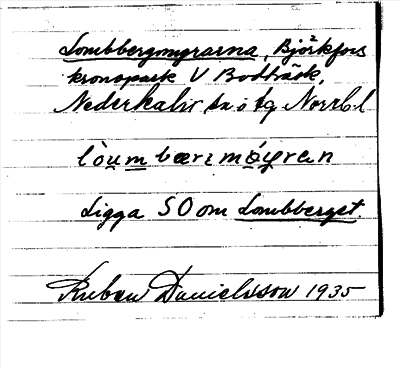 Lombbergmyrarna, Björkfors
kronopark V Bodträsk,
Nederkalix sn o tg Norrb. l
lòu̠m bærɪ mýran
Ligga SO om Lombberget.
Ruben Danielsson 1935